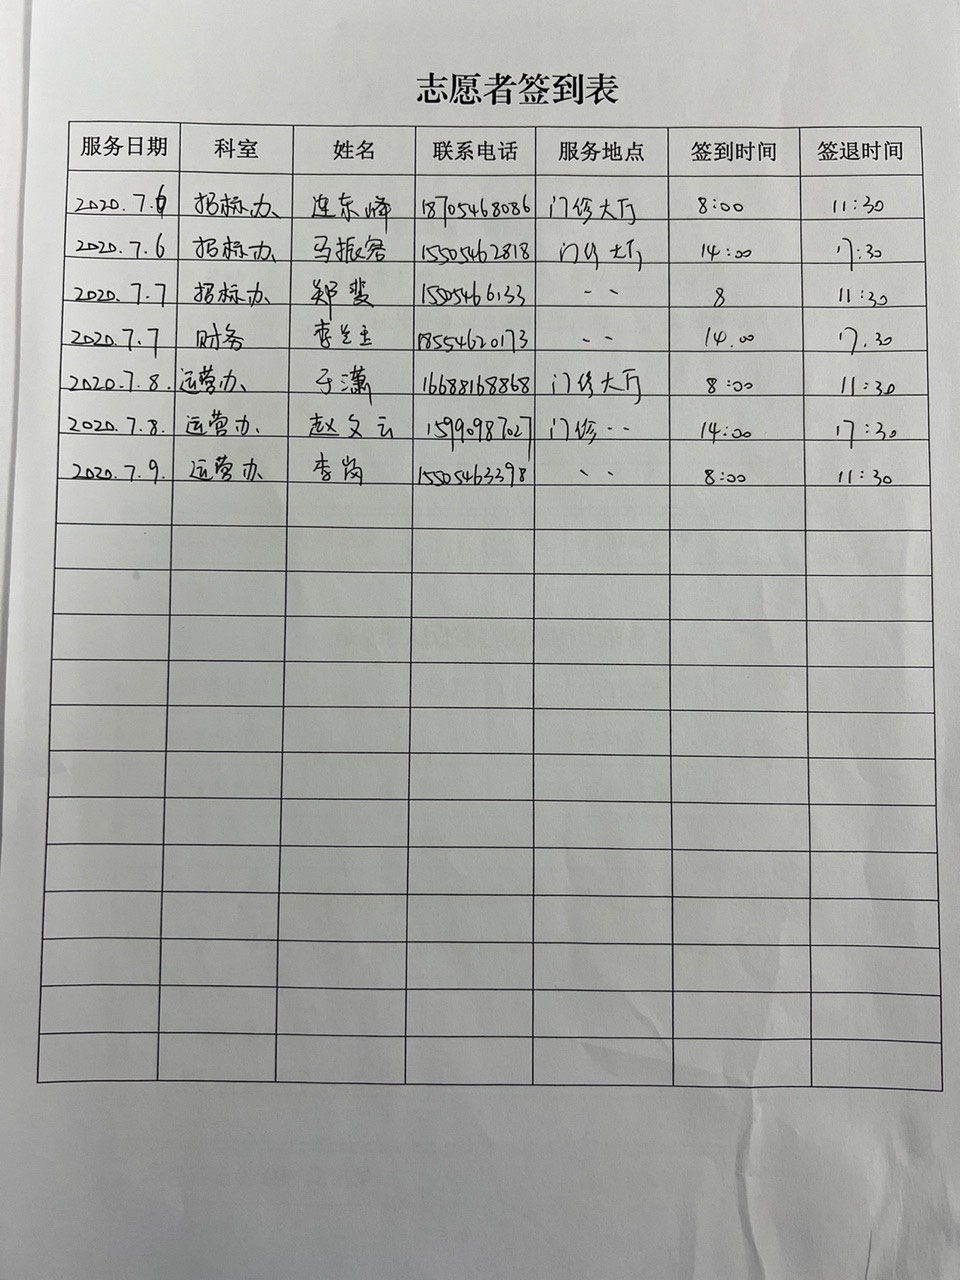 志愿者签到表
服务日期 科室 姓名 联系电话 服务地点 签到时间 签退时间
2020.7.6 招标办 连东峰 18705468086 门诊大厅 8:00 11:30
2020.7.6 招标办 马振客 15505462818 门诊大厅 14:00 17:30
2020.7.7 招标办 郑斐 15505466133 、、 8 11:30
2020.7.7 财务 李 18554620173 、、 14.00 17.30
2020.7.8. 运营办 于潇 16688168868 门诊大厅 8:00 11:30
2020.7.8. 运营办 赵文云 15990987027 门诊、、 14:00 17:30
2020.7.9. 运营办 李岗 15505463398 、、 8:00 11:30